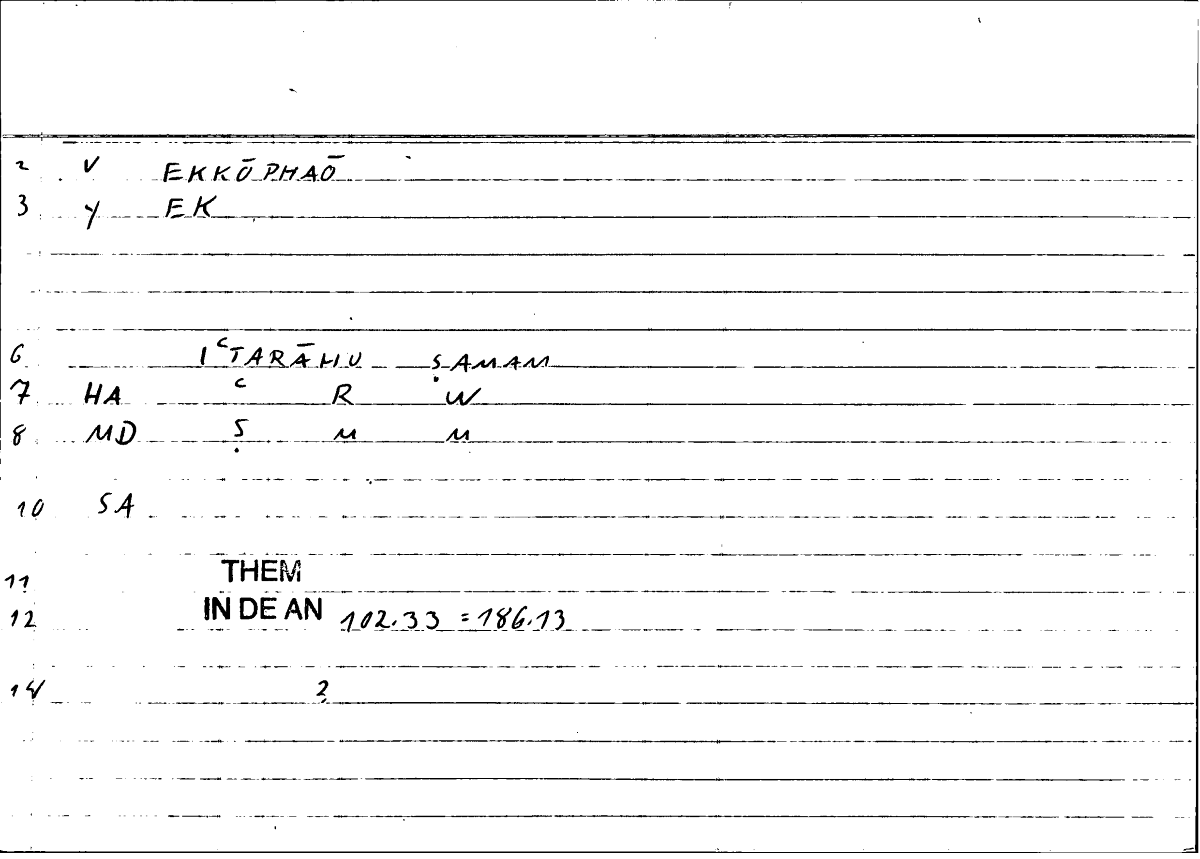 2 V EKKŌPHAŌ
3 y EK
6 IʿTARĀHU ṢAMAM
7 HA ʿ R W
8 MD Ṣ M M
10 SA
11 THEM
12 IN DE AN 102.33 = 186.13
14 ?